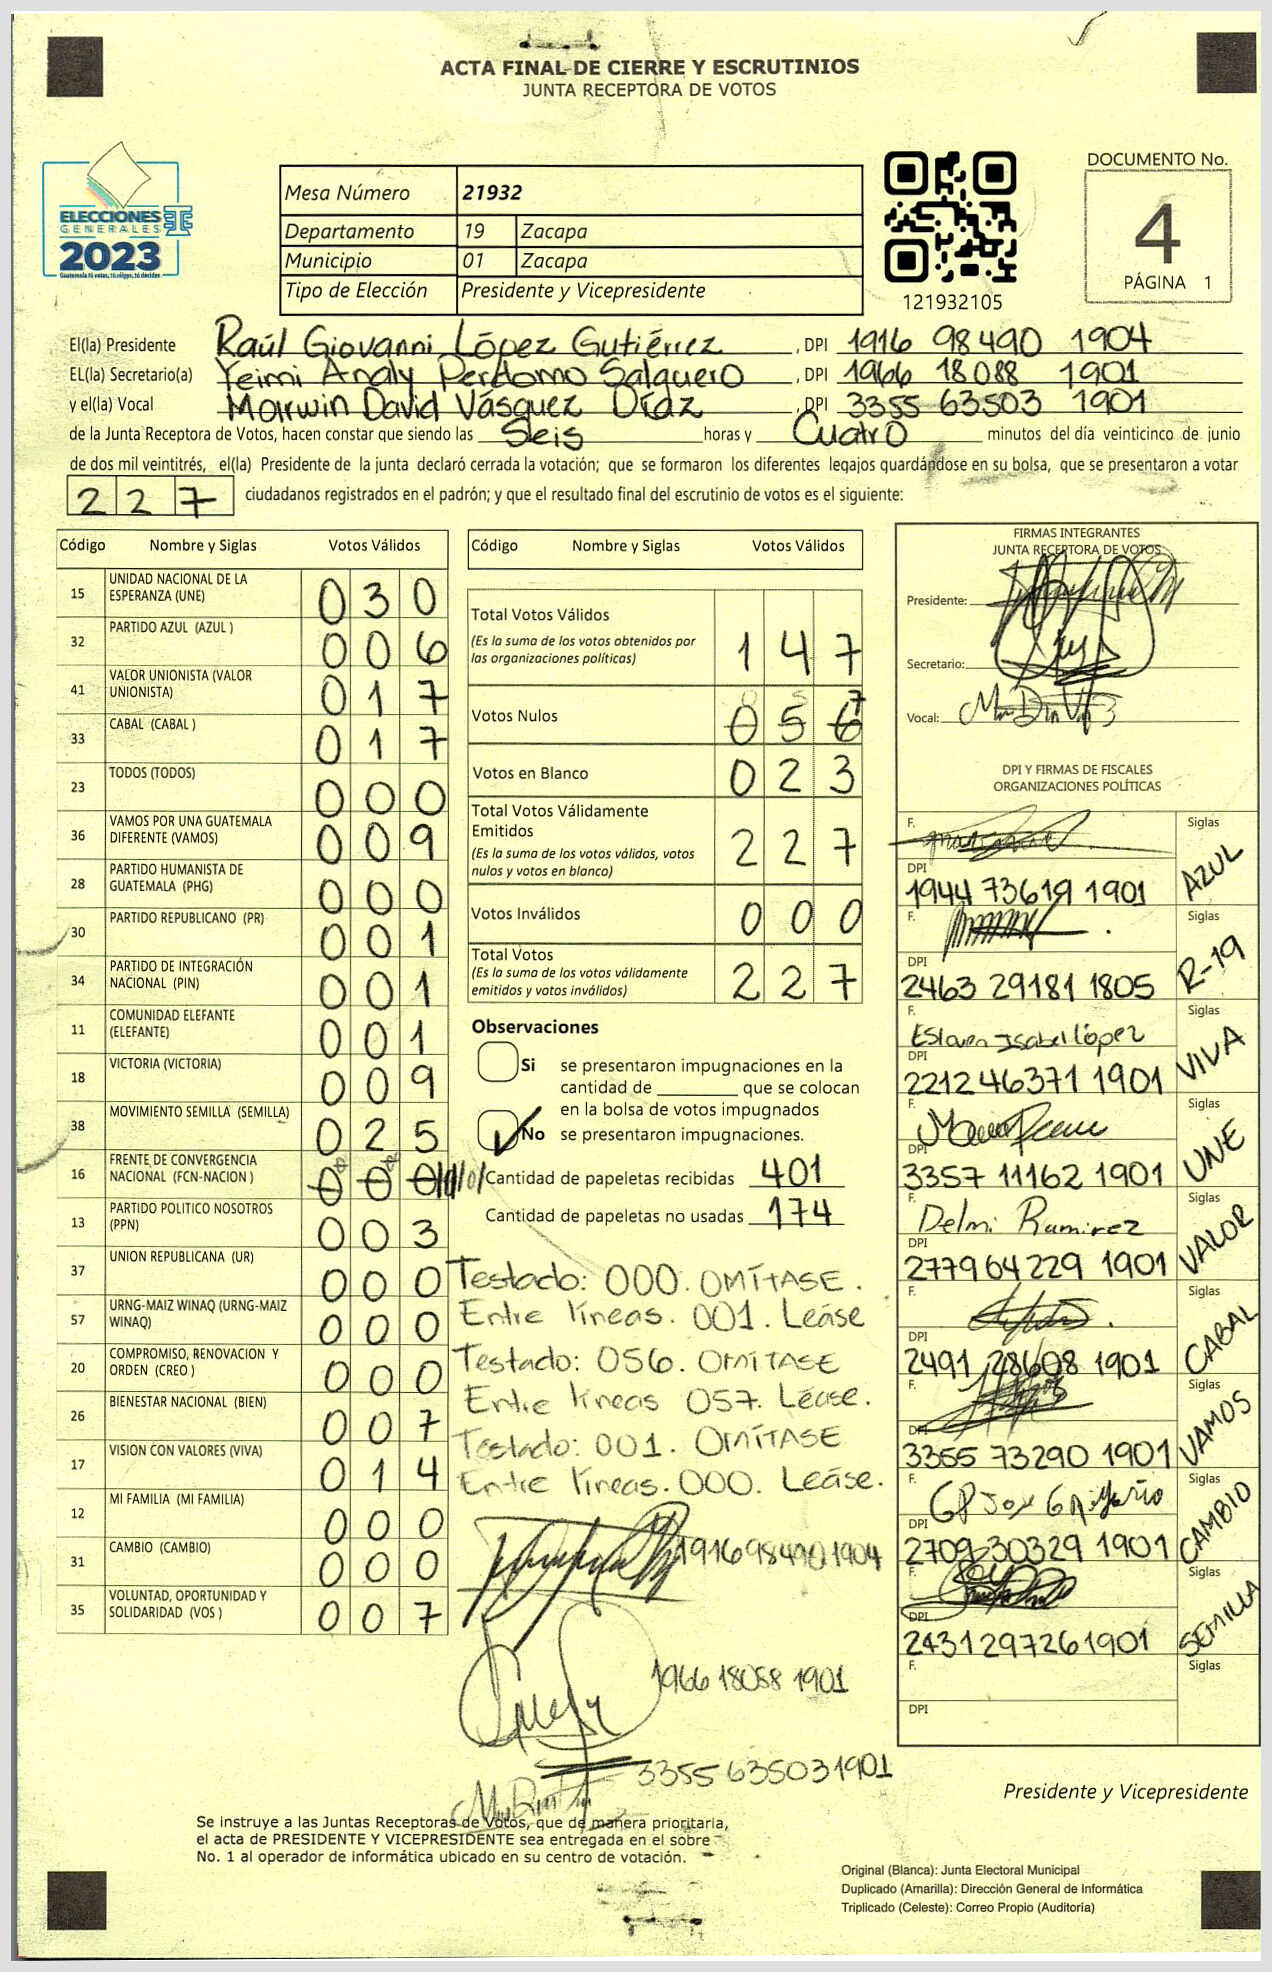 ACTA FINAL DE CIERRE Y ESCRUTINIOS
JUNTA RECEPTORA DE VOTOS
ELECCIONES
GENERALES
2023
Guatemala tú votas, tú eliges, tú decides
Mesa Número 21932
Departamento 19 Zacapa
Municipio 01 Zacapa
Tipo de Elección Presidente y Vicepresidente
121932105
DOCUMENTO No.
4
PÁGINA 1
El(la) Presidente Raúl Giovanni López Gutiérrez , DPI 1916 98490 1904
EL(la) Secretario(a) Yeimi Analy Perdomo Salguero , DPI 1966 18088 1901
y el(la) Vocal Marwin David Vásquez Díaz , DPI 3355 63503 1901
de la Junta Receptora de Votos, hacen constar que siendo las Seis horas y Cuatro minutos del día veinticinco de junio
de dos mil veintitrés, el(la) Presidente de la junta declaró cerrada la votación; que se formaron los diferentes legajos guardándose en su bolsa, que se presentaron a votar
227 ciudadanos registrados en el padrón; y que el resultado final del escrutinio de votos es el siguiente:
Código Nombre y Siglas Votos Válidos
15 UNIDAD NACIONAL DE LA ESPERANZA (UNE) 030
32 PARTIDO AZUL (AZUL ) 006
41 VALOR UNIONISTA (VALOR UNIONISTA) 017
33 CABAL (CABAL ) 017
23 TODOS (TODOS) 000
36 VAMOS POR UNA GUATEMALA DIFERENTE (VAMOS) 009
28 PARTIDO HUMANISTA DE GUATEMALA (PHG) 000
30 PARTIDO REPUBLICANO (PR) 001
34 PARTIDO DE INTEGRACIÓN NACIONAL (PIN) 001
11 COMUNIDAD ELEFANTE (ELEFANTE) 001
18 VICTORIA (VICTORIA) 009
38 MOVIMIENTO SEMILLA (SEMILLA) 025
16 FRENTE DE CONVERGENCIA NACIONAL (FCN-NACION ) 000
13 PARTIDO POLITICO NOSOTROS (PPN) 003
37 UNION REPUBLICANA (UR) 000
57 URNG-MAIZ WINAQ (URNG-MAIZ WINAQ) 000
20 COMPROMISO, RENOVACION Y ORDEN (CREO ) 000
26 BIENESTAR NACIONAL (BIEN) 007
17 VISION CON VALORES (VIVA) 014
12 MI FAMILIA (MI FAMILIA) 000
31 CAMBIO (CAMBIO) 000
35 VOLUNTAD, OPORTUNIDAD Y SOLIDARIDAD (VOS ) 007
Código Nombre y Siglas Votos Válidos
Total Votos Válidos 147
(Es la suma de los votos obtenidos por
las organizaciones políticas)
Votos Nulos 056 7
Votos en Blanco 023
Total Votos Válidamente
Emitidos 227
(Es la suma de los votos válidos, votos
nulos y votos en blanco)
Votos Inválidos 000
Total Votos 227
(Es la suma de los votos válidamente
emitidos y votos inválidos)
Observaciones
Si se presentaron impugnaciones en la
cantidad de ________ que se colocan
en la bolsa de votos impugnados
No se presentaron impugnaciones.
Cantidad de papeletas recibidas 401
Cantidad de papeletas no usadas 174
Testado: 000. OMÍTASE.
Entre líneas. 001. Leáse
Testado: 056. OMÍTASE
Entre líneas 057. Léase.
Testado: 001. OMÍTASE
Entre líneas. 000. Leáse.
1916984901904
1966 18058 1901
3355 63503 1901
FIRMAS INTEGRANTES
JUNTA RECEPTORA DE VOTOS
Presidente:
Secretario:
Vocal:
DPI Y FIRMAS DE FISCALES
ORGANIZACIONES POLÍTICAS
F. Siglas
DPI 1944 73619 1901 AZUL
F. Siglas
DPI 2463 29181 1805 R-19
F. Isabel López Siglas
DPI 2212 46371 1901 VIVA
F. Siglas
DPI 3357 11162 1901 UNE
F. Delmi Ramirez Siglas
DPI 2779 64229 1901 VALOR
F. Siglas
DPI 2491 28608 1901 CABAL
F. Siglas
DPI 3355 73290 1901 VAMOS
F. Siglas
DPI 2709 30329 1901 CAMBIO
F. Siglas
DPI 2431 29726 1901 SEMILLA
F. Siglas
DPI
Presidente y Vicepresidente
Se instruye a las Juntas Receptoras de Votos, que de manera prioritaria,
el acta de PRESIDENTE Y VICEPRESIDENTE sea entregada en el sobre
No. 1 al operador de informática ubicado en su centro de votación.
Original (Blanca): Junta Electoral Municipal
Duplicado (Amarilla): Dirección General de Informática
Triplicado (Celeste): Correo Propio (Auditoría)